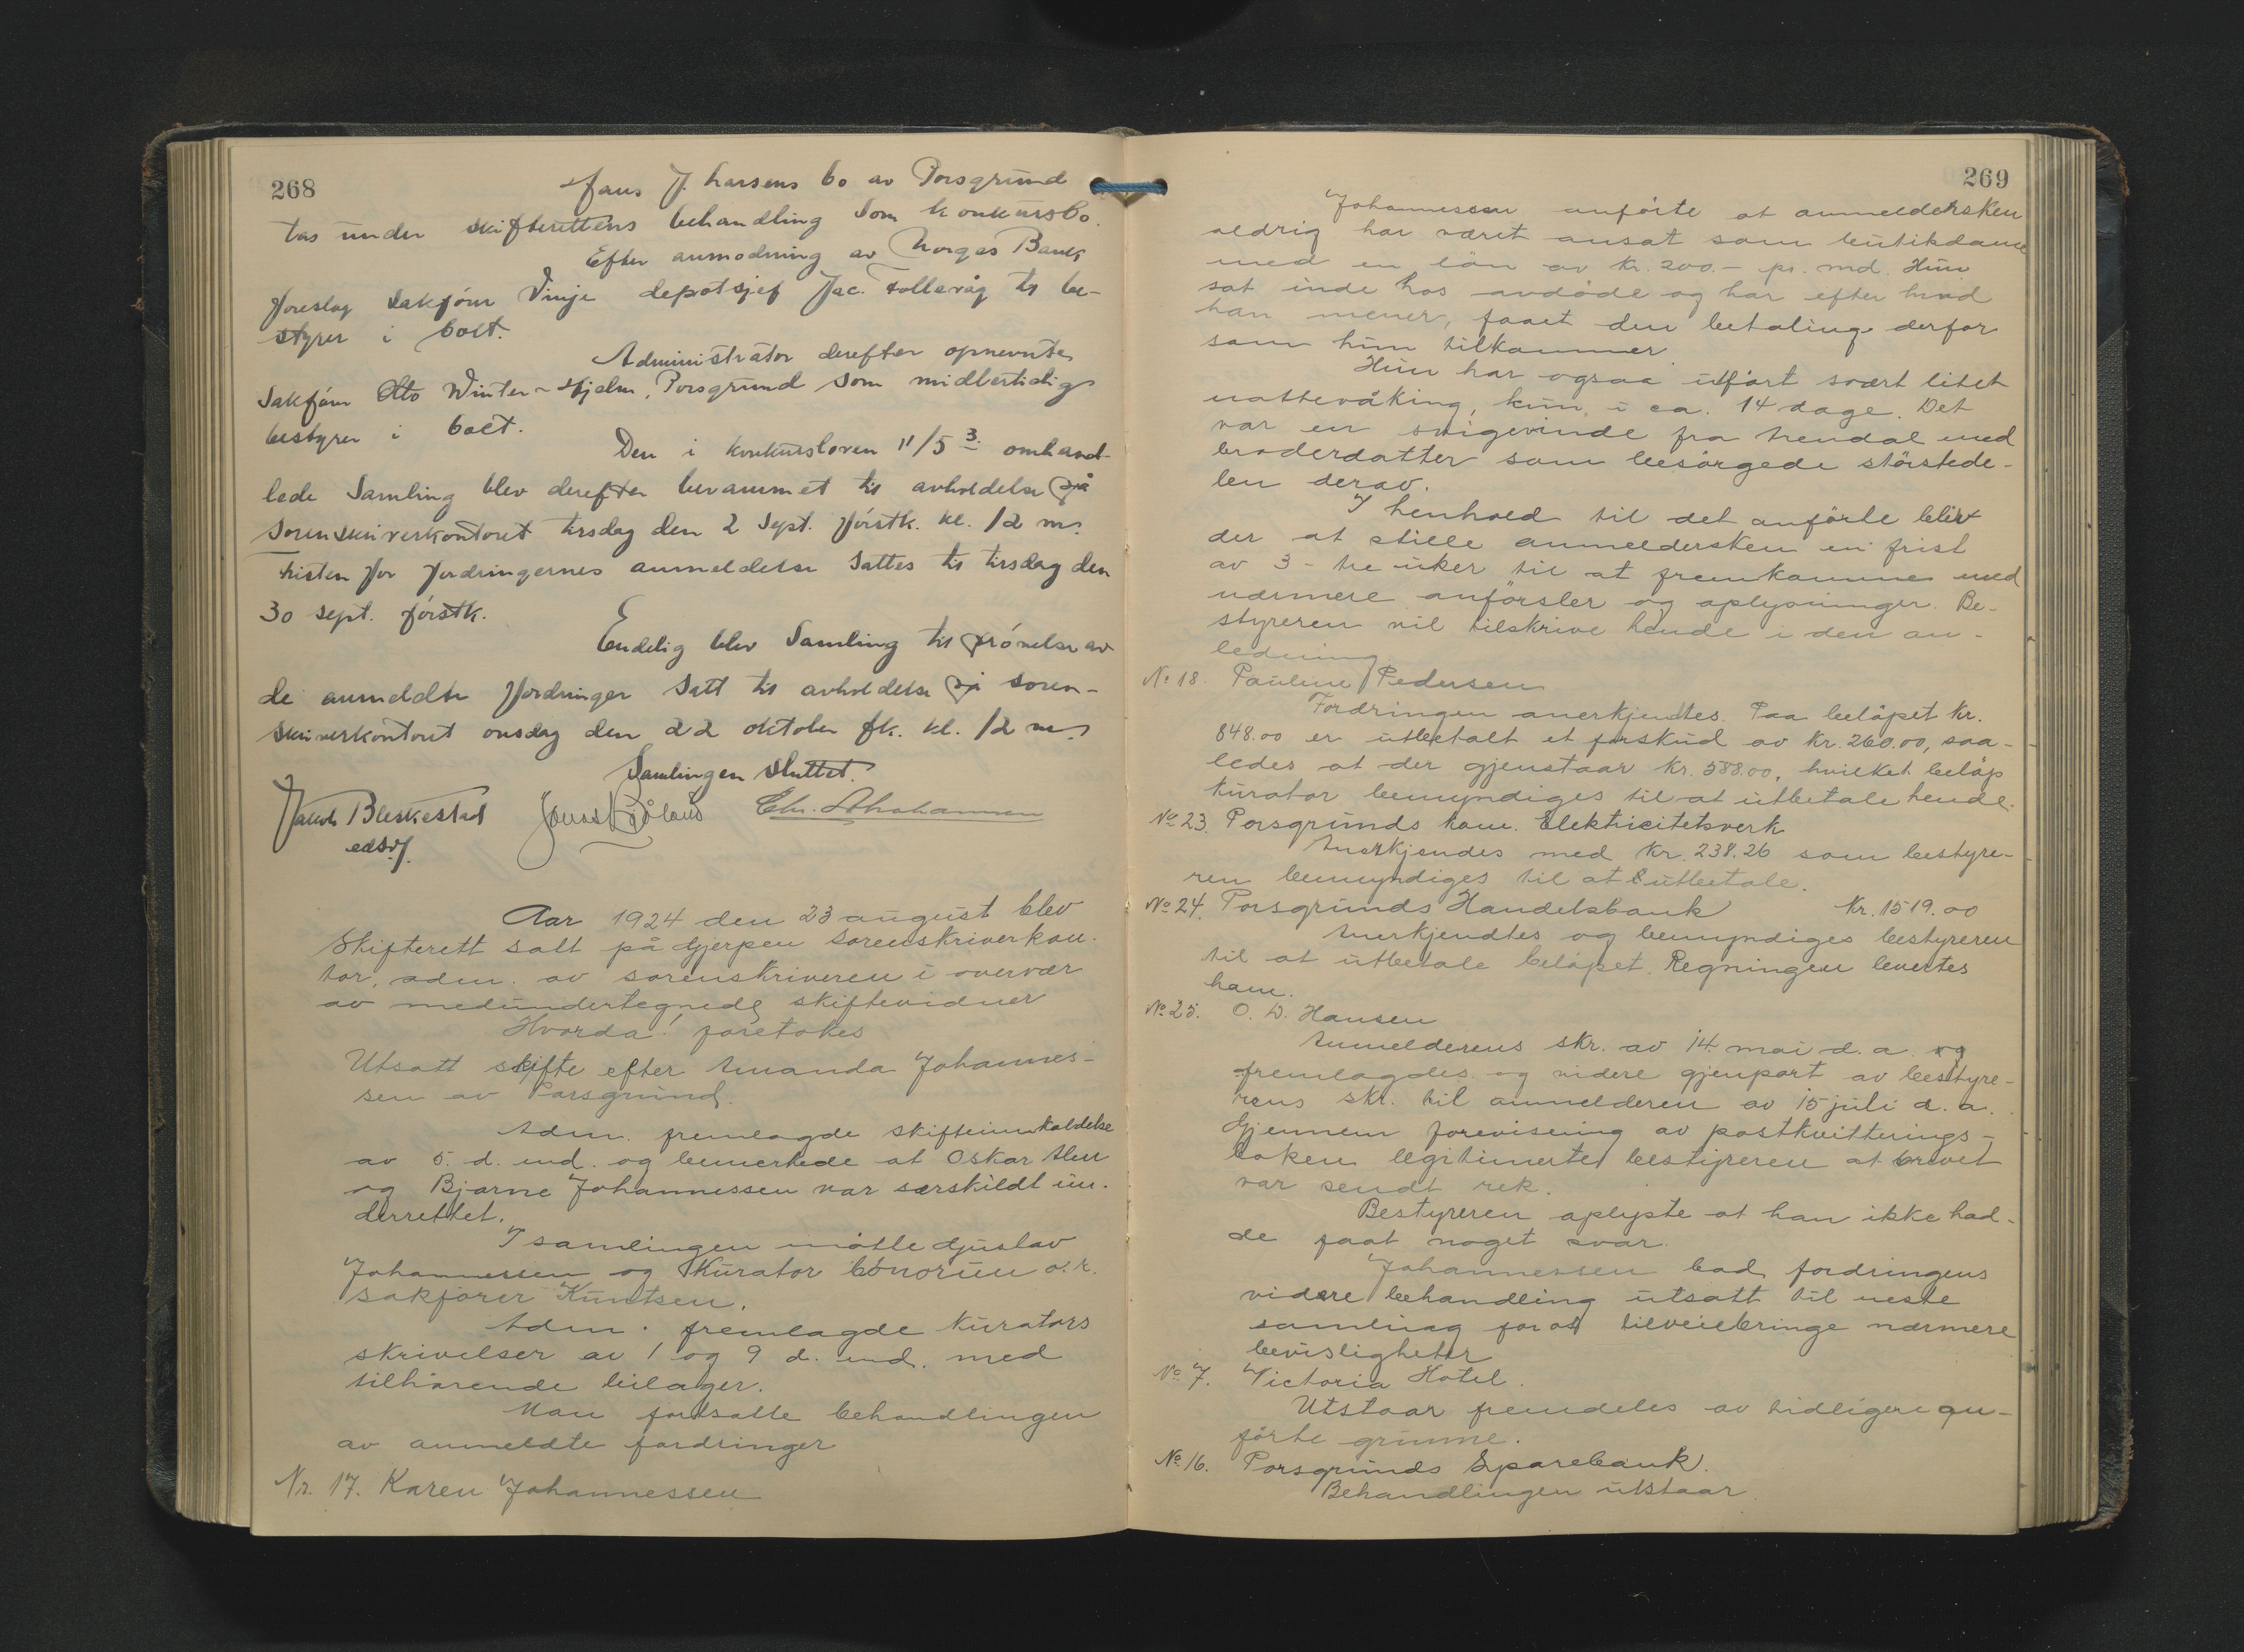 268
Hans J. Larsens bo av Porsgrund
tas under skifterettens behandling som konkursbo.
Efter anmodning av Norges Bank
foreslog sakfører Vinje depotsjef Jac. Folleråg til be-
styrer i boet.
Administrator derefter opnevnte
Sakfører Otto Winter-Hjelm, Porsgrund som midlertidig
bestyrer i boet.
Den i konkursloven 11/5 3. omhand-
lede Samling blev derefter berammet til avholdelse på
Sorenskriverkontoret tirsdag den 2 Sept. førstk. kl. 12 m.
Fristen for fordringernes anmeldelse sattes til tirsdag den
30 sept. førstk.
Endelig blev Samling til prøvelse av
de anmeldte fordringer satt til avholdelse på soren-
skriverkontoret onsdag den 22 oktober fk. kl. 12 m.
Samlingen sluttet.
Jakob Bleskestad
edsvf.
Chr. Abrahamsen
Aar 1924 den 23 august blev
Skifterett satt på Gjerpen sorenskriverkon-
tor, adm. av sorenskriveren i overvær
av medundertegnede skiftevidner
Hvorda! foretokes
Utsatt skifte efter Amanda Johannes-
sen av Porsgrund.
Adm. fremlagde skifteinnkaldelse
av 5. d. md. og bemerkede at Oskar Alm
og Bjarne Johannessen var særskildt un-
derrettet.
I samlingen møtte Gjustav
Johannessen og Kurator bonorum o.r.
sakfører Kuntsen.
Adm. fremlagde kurators
skrivelser av 1 og 9 d. md. med
tilhørende bilager.
Man fortsatte behandlingen
av anmeldte fordringer
Nr. 17. Karen Johannessen
269
Johannessen anførte at anmeldersken
aldrig har været ansat som butikdame
med en løn av kr. 200.- pr. md. Hun
sat inde hos avdøde og har efter hvad
han mener, faaet den betaling derfor
som hun tilkommer.
Hun har ogsaa utført svært litet
nattevåking, kun i ca. 14 dage. Det
var en svigerinde fra Arendal med
broderdatter som besørgede størstede-
len derav.
I henhold til det anførte blir
der at stille anmeldersken en frist
av 3 - tre uker til at fremkomme med
nærmere anførsler og oplysninger. Be-
styreren vil tilskrive hende i den an-
ledning.
No 18. Pauline Pedersen
Fordringen anerkjendtes. Paa beløpet kr.
848.00 er utbetalt et forskud av kr. 260.00, saa-
ledes at der gjenstaar kr. 588.00, hvilket beløp
kurator bemyndiges til at utbetale hende.
No 23. Porsgrunds kom. Elektricitetsverk
Anerkjendes med kr. 238.26 som bestyre-
ren bemyndiges til at utbetale.
No 24. Porsgrunds Handelsbank kr. 1519.00
Anerkjendtes og bemyndiges bestyreren
til at utbetale beløpet. Regningen levertes
ham.
No 25. O. D. Hansen
Anmelderens skr. av 14. mai d. a. og
fremlagdes og videre gjenpart av bestyre-
rens skr. til anmelderen av 15 juli d. a.
Gjennem forevisning av postkvitterings-
boken legitimertes bestyreren at brevet
var sendt rek.
Bestyreren oplyste at han ikke had-
de faat noget svar.
Johannessen bad fordringens
videre behandling utsatt til neste
samling for at tilveiebringe nærmere
bevisligheter
No 7. Victoria Hotel.
Utstaar fremdeles av tidligere an-
førte grunne.
No 16. Porsgrunds Sparebank.
Behandlingen utstaar